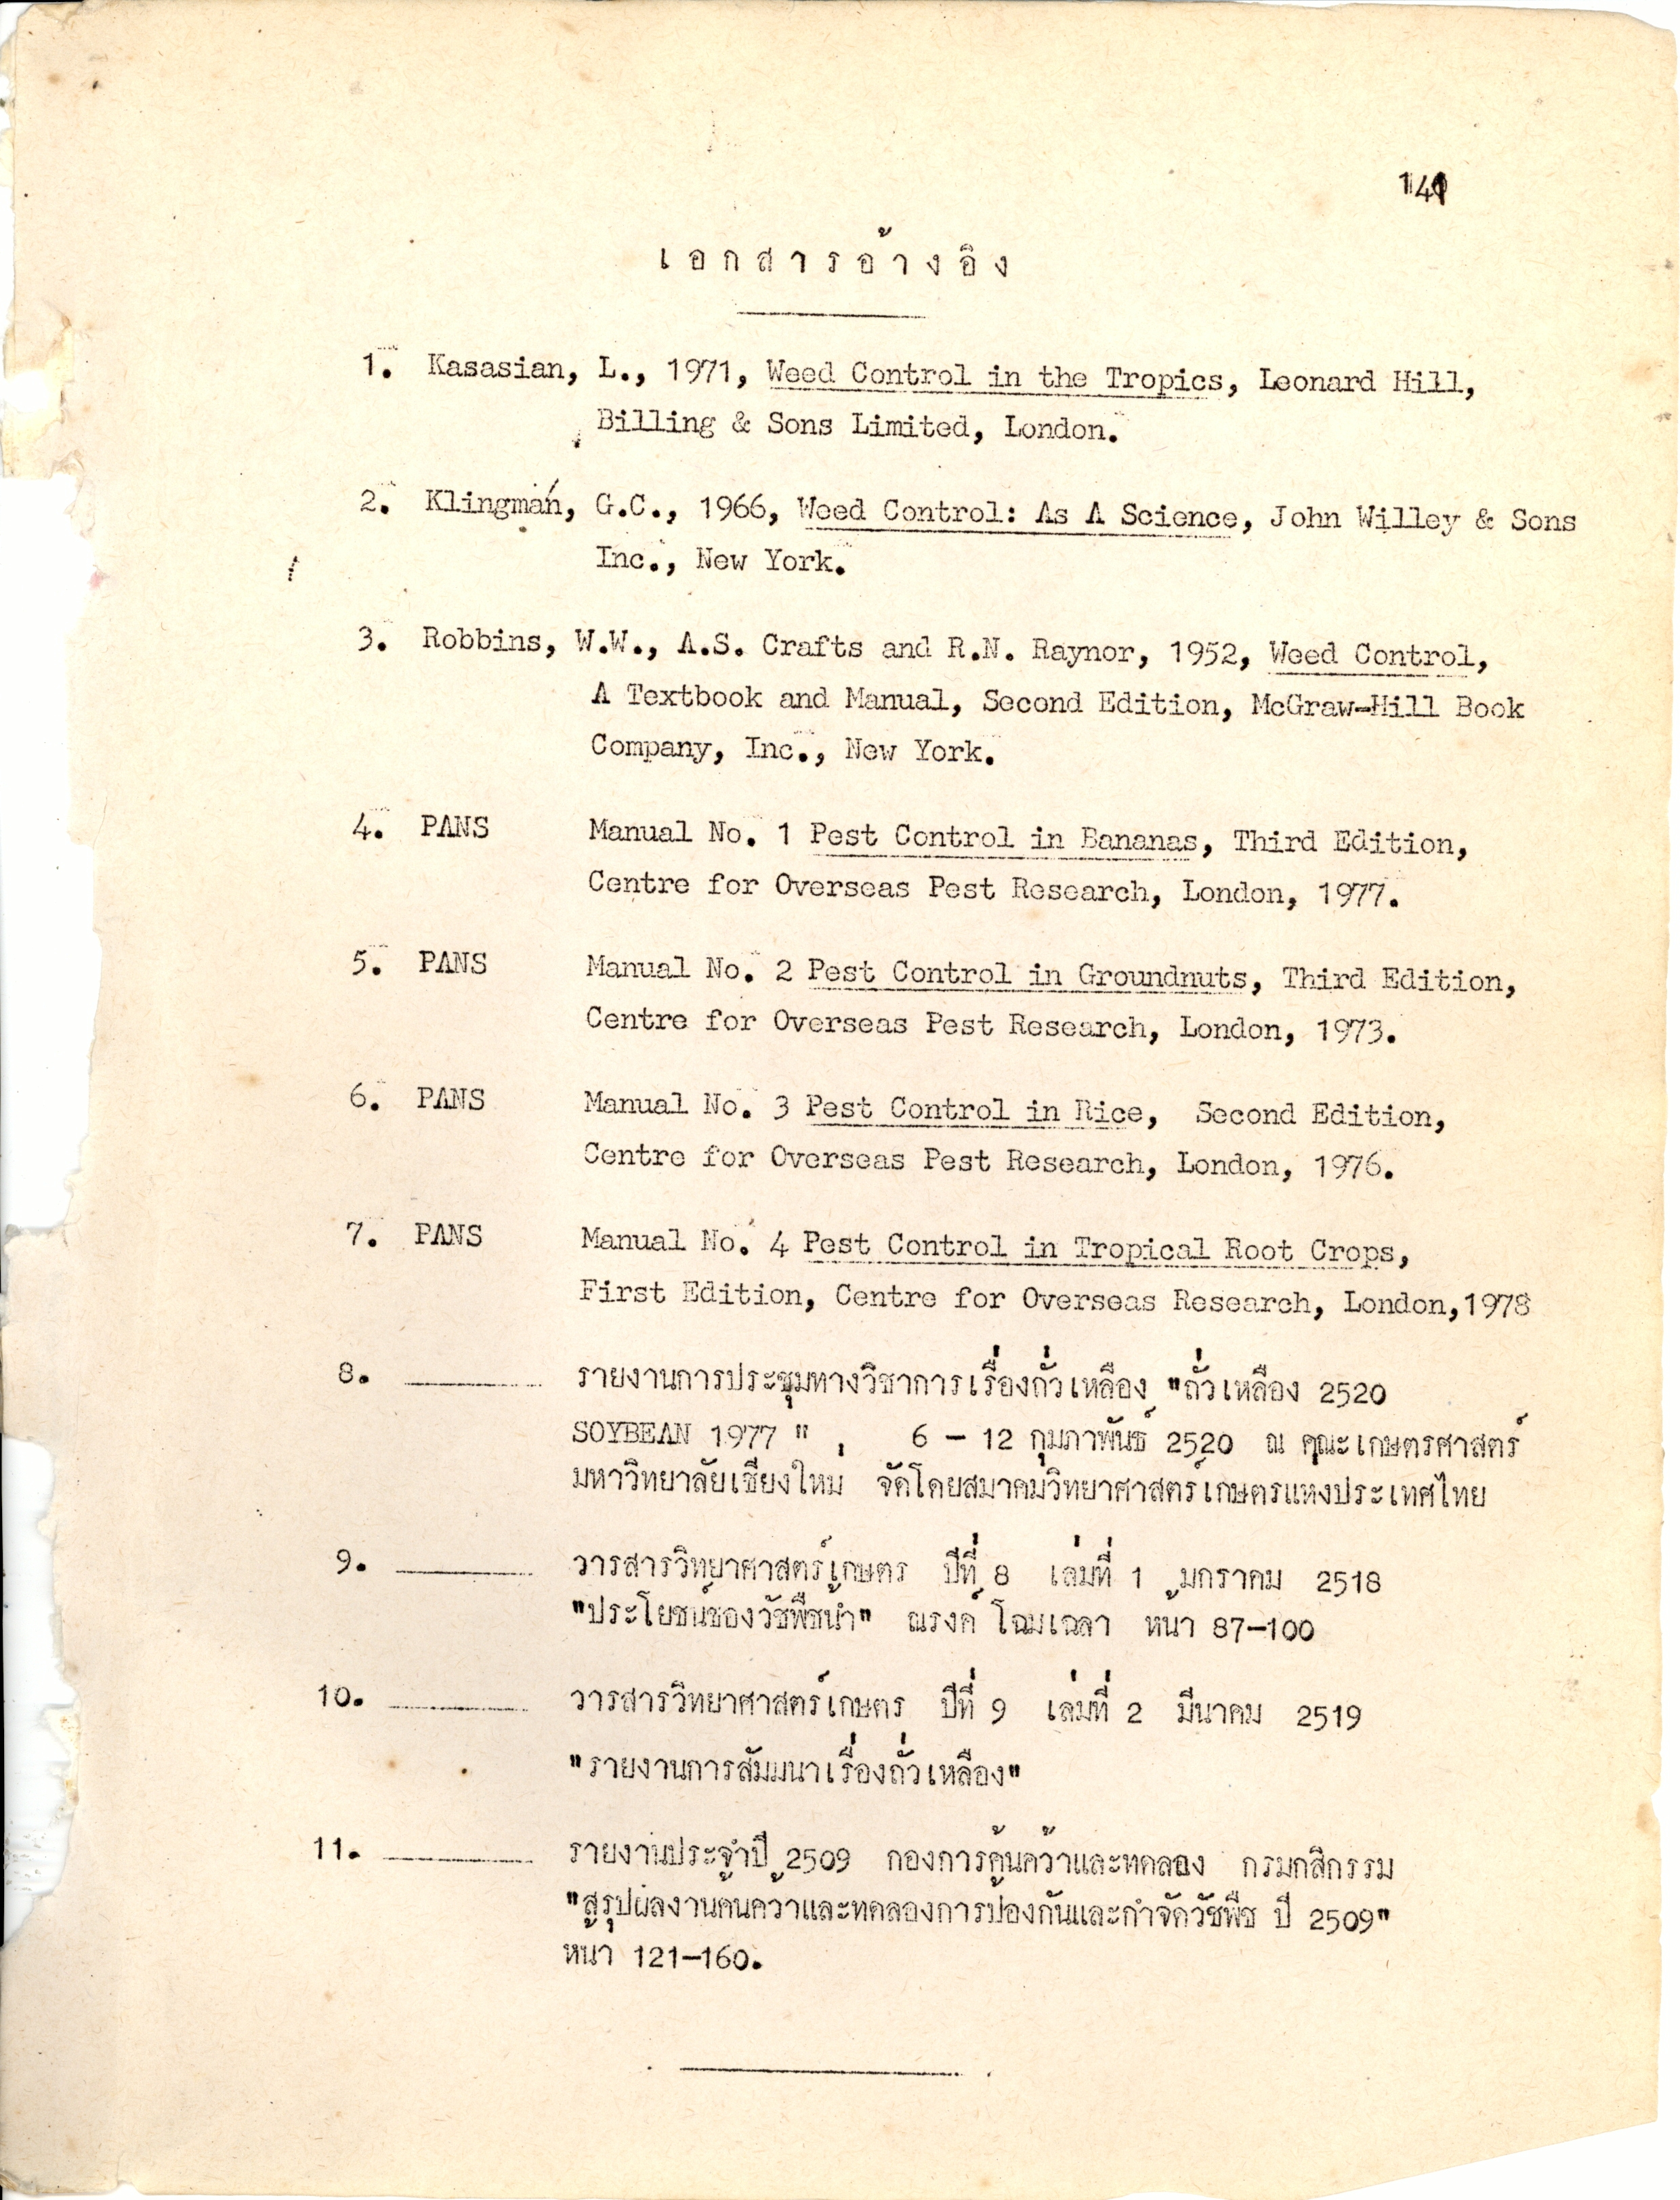 141
เอกสารอ้างอิง
1. Kasasian, L., 1971, Weed Control in the Tropics, Leonard Hill,
Billing & Sons Limited, London.
2. Klingman, G.C., 1966, Weed Control: As A Science, John Willey & Sons
Inc., New York.
3. Robbins, W.W., A.S. Crafts and R.N. Raynor, 1952, Weed Control,
A Textbook and Manual, Second Edition, McGraw-Hill Book
Company, Inc., New York.
4. PANS Manual No. 1 Pest Control in Bananas, Third Edition,
Centre for Overseas Pest Research, London, 1977.
5. PANS Manual No. 2 Pest Control in Groundnuts, Third Edition,
Centre for Overseas Pest Research, London, 1973.
6. PANS Manual No. 3 Pest Control in Rice, Second Edition,
Centre for Overseas Pest Research, London, 1976.
7. PANS Manual No. 4 Pest Control in Tropical Root Crops,
First Edition, Centre for Overseas Research, London,1978
8. รายงานการประชุมทางวิชาการเรื่องถั่วเหลือง "ถั่วเหลือง 2520
SOYBEAN 1977 " , 6 - 12 กุมภาพันธ์ 2520 ณ คณะเกษตรศาสตร์
มหาวิทยาลัยเชียงใหม่ จัดโดยสมาคมวิทยาศาสตร์เกษตรแห่งประเทศไทย
9. วารสารวิทยาศาสตร์เกษตร ปีที่ 8 เล่มที่ 1 มกราคม 2518
"ประโยชน์ของวัชพืชน้ำ" ณรงค์ โฉมเฉลา หน้า 87-100
10. วารสารวิทยาศาสตร์เกษตร ปีที่ 9 เล่มที่ 2 มีนาคม 2519
"รายงานการสัมมนาเรื่องถั่วเหลือง"
11. รายงานประจำปี 2509 กองการค้นคว้าและทดลอง กรมกสิกรรม
"สรุปผลงานค้นคว้าและทดลองการป้องกันและกำจัดวัชพืช ปี 2509"
หน้า 121-160.